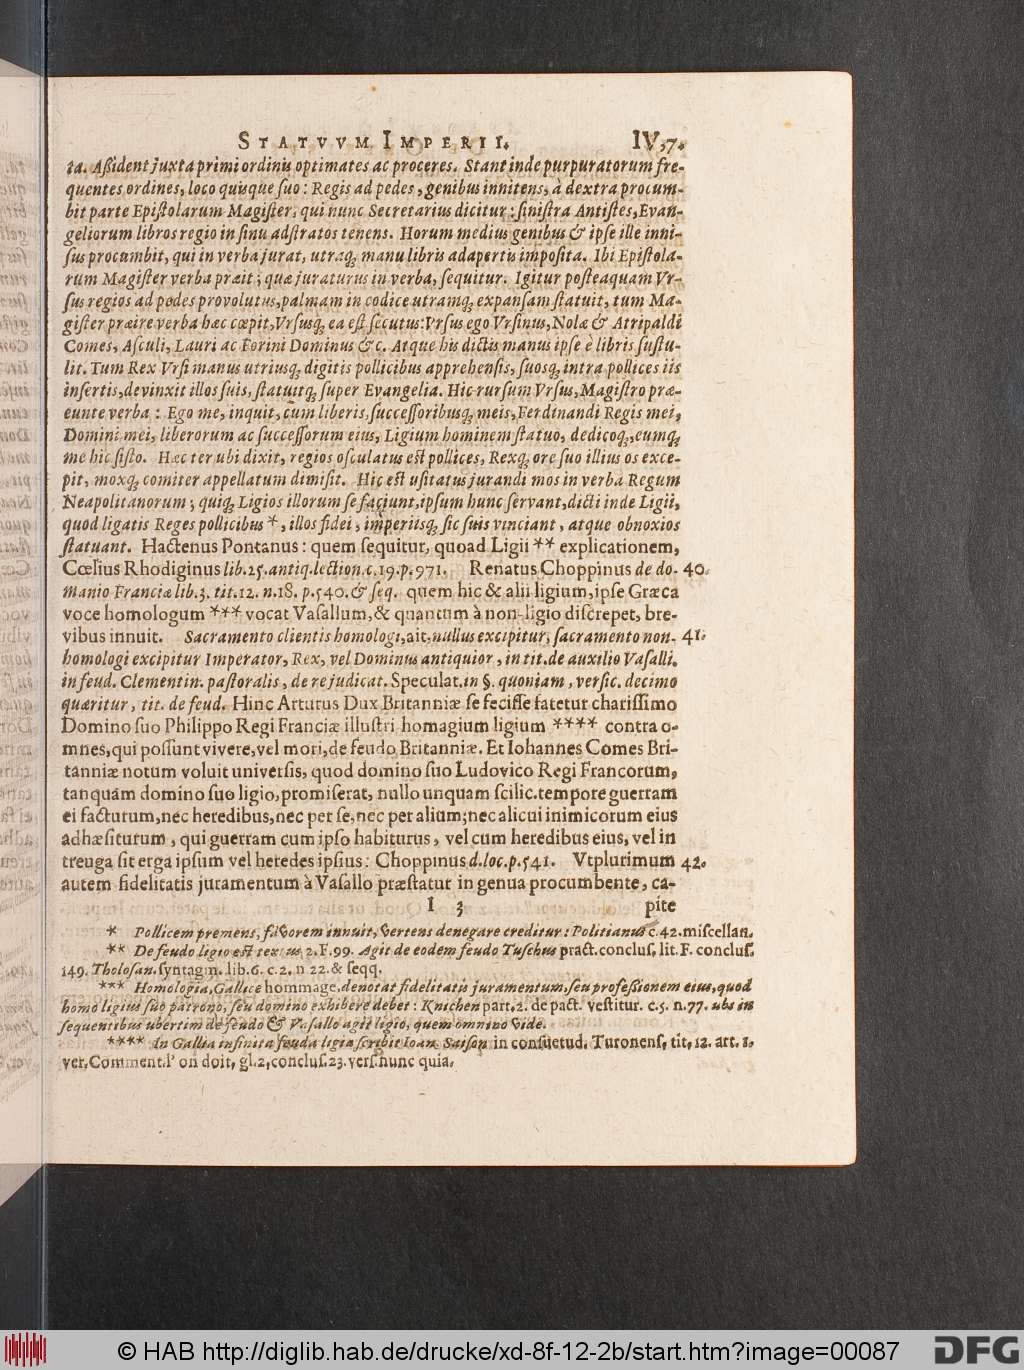 STATVVM IMPERII. IV,7.
ta. Aßident juxta primi ordinis optimates ac proceres. Stant inde purpuratorum fre-
quentes ordines, loco quisque suo: Regis ad pedes, genibus innitens, à dextra procum-
bit parte Epistolarum Magister, qui nunc Secretarius dicitur: sinistra Antistes, Evan-
geliorum libros regio in sinu adstratos tenens. Horum medius genibus & ipse ille inni-
sus procumbit, qui in verba jurat, utraq; manu libris adapertis imposita. Ibi Epistola-
rum Magister verba præit; quæ juraturus in verba, sequitur. Igitur posteaquam Vr-
sus regios ad pedes provolutus, palmam in codice utramq; expansam statuit, tum Ma-
gister præire verba hæc cœpit, Vrsusq; ea est secutus: Vrsus ego Vrsinus, Nolæ & Atripaldi
Comes, Asculi, Lauri ac Forini Dominus &c. Atque his dictis manus ipse è libris sustu-
lit. Tum Rex Vrsi manus utriusq; digitis pollicibus apprehensis, suosq; intra pollices iis
insertis, devinxit illos suis, statuitq; super Evangelia. Hic rursum Vrsus, Magistro præ-
eunte verba: Ego me, inquit, cum liberis, successoribusq; meis, Ferdinandi Regis mei,
Domini mei, liberorum ac successorum eius, Ligium hominem statuo, dedicoq;, eumq;
me hic sisto. Hæc ter ubi dixit, regios osculatus est pollices, Rexq; ore suo illius os exce-
pit, moxq; comiter appellatum dimisit. Hic est usitatus jurandi mos in verba Regum
Neapolitanorum; quiq; Ligios illorum se faciunt, ipsum hunc servant, dicti inde Ligii,
quod ligatis Reges pollicibus *, illos fidei, imperiisq; sic suis vinciant, atque obnoxios
statuant. Hactenus Pontanus: quem sequitur, quoad Ligii ** explicationem,
Cœlius Rhodiginus lib. 25. antiq. lection. c. 19. p. 971. Renatus Choppinus de do- 40.
manio Franciæ lib. 3. tit. 12. n. 18. p. 540. & seq. quem hic & alii ligium, ipse Græca
voce homologum *** vocat Vasallum, & quantum à non-ligio discrepet, bre-
vibus innuit. Sacramento clientis homologi, ait, nullus excipitur; sacramento non- 41.
homologi excipitur Imperator, Rex, vel Dominus antiquior, in tit. de auxilio Vasalli.
in feud. Clementin. pastoralis, de re judicat. Speculat. in §. quoniam, versic. decimo
quæritur, tit. de feud. Hinc Arturus Dux Britanniæ se fecisse fatetur charissimo
Domino suo Philippo Regi Franciæ illustri homagium ligium **** contra o-
mnes, qui possunt vivere, vel mori, de feudo Britanniæ. Et Iohannes Comes Bri-
tanniæ notum voluit universis, quod domino suo Ludovico Regi Francorum,
tanquam domino suo ligio, promiserat, nullo unquam scilic. tempore guerram
ei facturum, nec heredibus, nec per se, nec per alium; nec alicui inimicorum eius
adhæsiturum, qui guerram cum ipso habiturus, vel cum heredibus eius, vel in
treuga sit erga ipsum vel heredes ipsius: Choppinus d. loc. p. 541. Vtplurimum 42.
autem fidelitatis juramentum à Vasallo præstatur in genua procumbente, ca-
I 3 pite
* Pollicem premens, favorem innuit, vertens denegare creditur: Politianus c. 42. miscellan.
** De feudo ligio est textus, 2. F. 99. Agit de eodem feudo Tuschus pract. conclus. lit. F. conclus.
149. Tholosan. syntagm. lib. 6. c. 2. n 22. & seqq.
*** Homologia, Gallice hommage, denotat fidelitatis juramentum, seu professionem eius, quod
homo ligius suo patrono, seu domino exhibere debet: Knichen part. 2. de pact. vestitur. c. 5. n. 77. ubi in
sequentibus ubertim de feudo & Vasallo agit ligio, quem omnino vide.
**** In Gallia infinita feuda ligia scribit Ioan. Saison in consuetud. Turonens. tit. 12. art. 1.
ver. Comment. l' on doit, gl. 2, conclus. 23. vers. nunc quia.
© HAB http://diglib.hab.de/drucke/xd-8f-12-2b/start.htm?image=00087 DFG